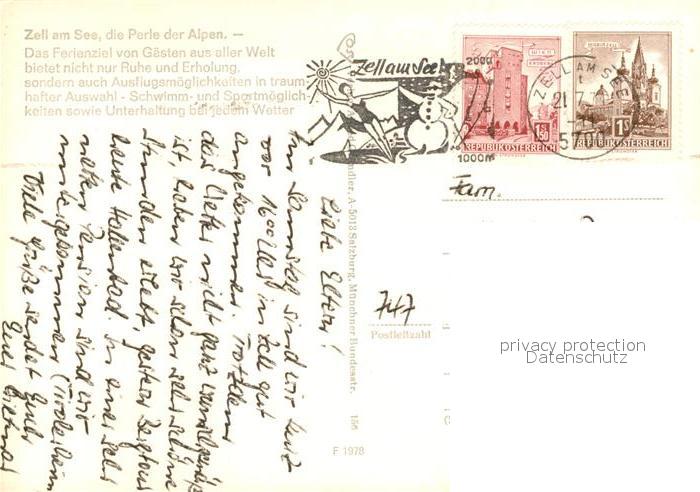 Zell am See, die Perle der Alpen. —
Das Ferienziel von Gästen aus aller Welt
bietet nicht nur Ruhe und Erholung,
sondern auch Ausflugsmöglichkeiten in traum-
hafter Auswahl - Schwimm- und Sportmöglich-
keiten sowie Unterhaltung bei jedem Wetter
Zell am See
2000
1000m
WIEN
1.50
REPUBLIK ÖSTERREICH
ZELL AM SEE
21. 7.
MARIAZELL
1S
REPUBLIK ÖSTERREICH
Fam.
747
Postleitzahl
A-5013 Salzburg, Münchner Bundesstr.
156
F 1978
Liebe Eltern!
Am Samstag sind wir kurz
vor 16 00 Uhr in Zell gut
angekommen. Trotzdem
das Wetter nicht ganz
ist haben wir schon sehr schöne
Stunden erlebt, gestern
heute Hallenbad. In einer sehr
netten Pension sind wir
untergekommen
Viele Grüße sendet Euch
Euer Dietmar
privacy protection
Datenschutz